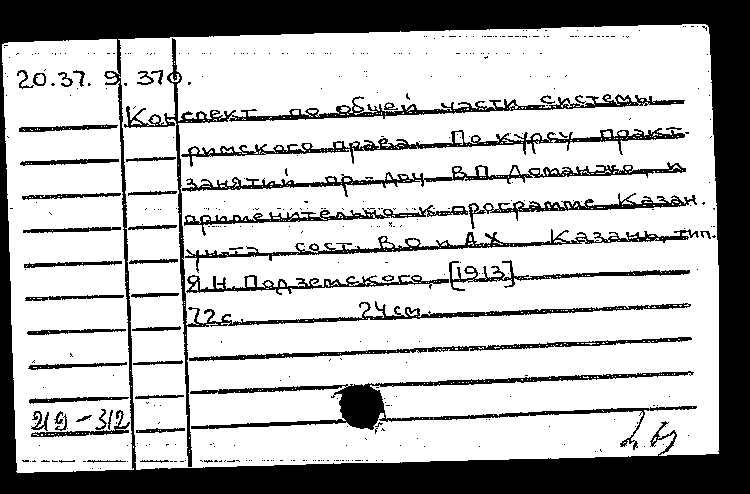 20.37.9.370.
Конспект по общей части системы
римского права. По курсу практ.
занятий пр.-доц. В.П. Доманжо и
применительно к программе Казан.
ун-та, сост. В.О и А.Х Казань, тип.
Я.Н. Подземского, [1913]
72с. 24см.
219-312